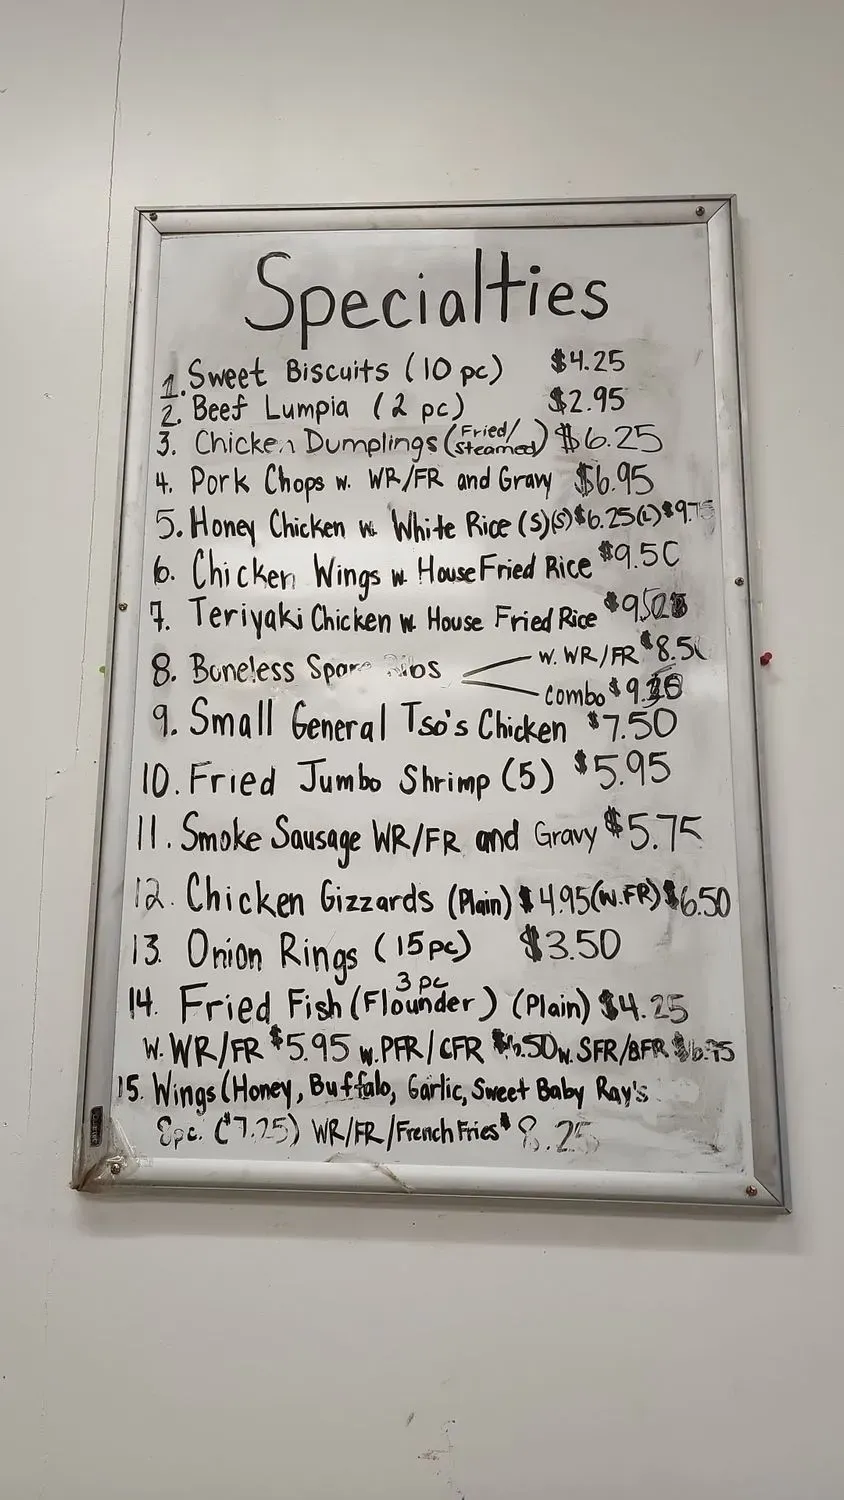 Specialties
1. Sweet Biscuits (10 pc) $4.25
2. Beef Lumpia (2 pc) $2.95
3. Chicken Dumplings (Fried/Steamed) $6.25
4. Pork Chops w. WR/FR and Gravy $6.95
5. Honey Chicken w. White Rice (S)(S)$6.25(L)$9.75
6. Chicken Wings w. House Fried Rice $9.50
7. Teriyaki Chicken w. House Fried Rice
8. Boneless Spare Ribs w. WR/FR $8.50
combo
9. Small General Tso's Chicken $7.50
10. Fried Jumbo Shrimp (5) $5.95
11. Smoke Sausage WR/FR and Gravy $5.75
12. Chicken Gizzards (Plain) $4.95(w.FR) $6.50
13. Onion Rings (15pc) $3.50
14. Fried Fish (Flounder) 3 pc (Plain) $4.25
w. WR/FR $5.95 w.PFR/CFR w. SFR/BFR
15. Wings (Honey, Buffalo, Garlic, Sweet Baby Ray's
8pc. ($7.25) WR/FR/French Fries $8.25